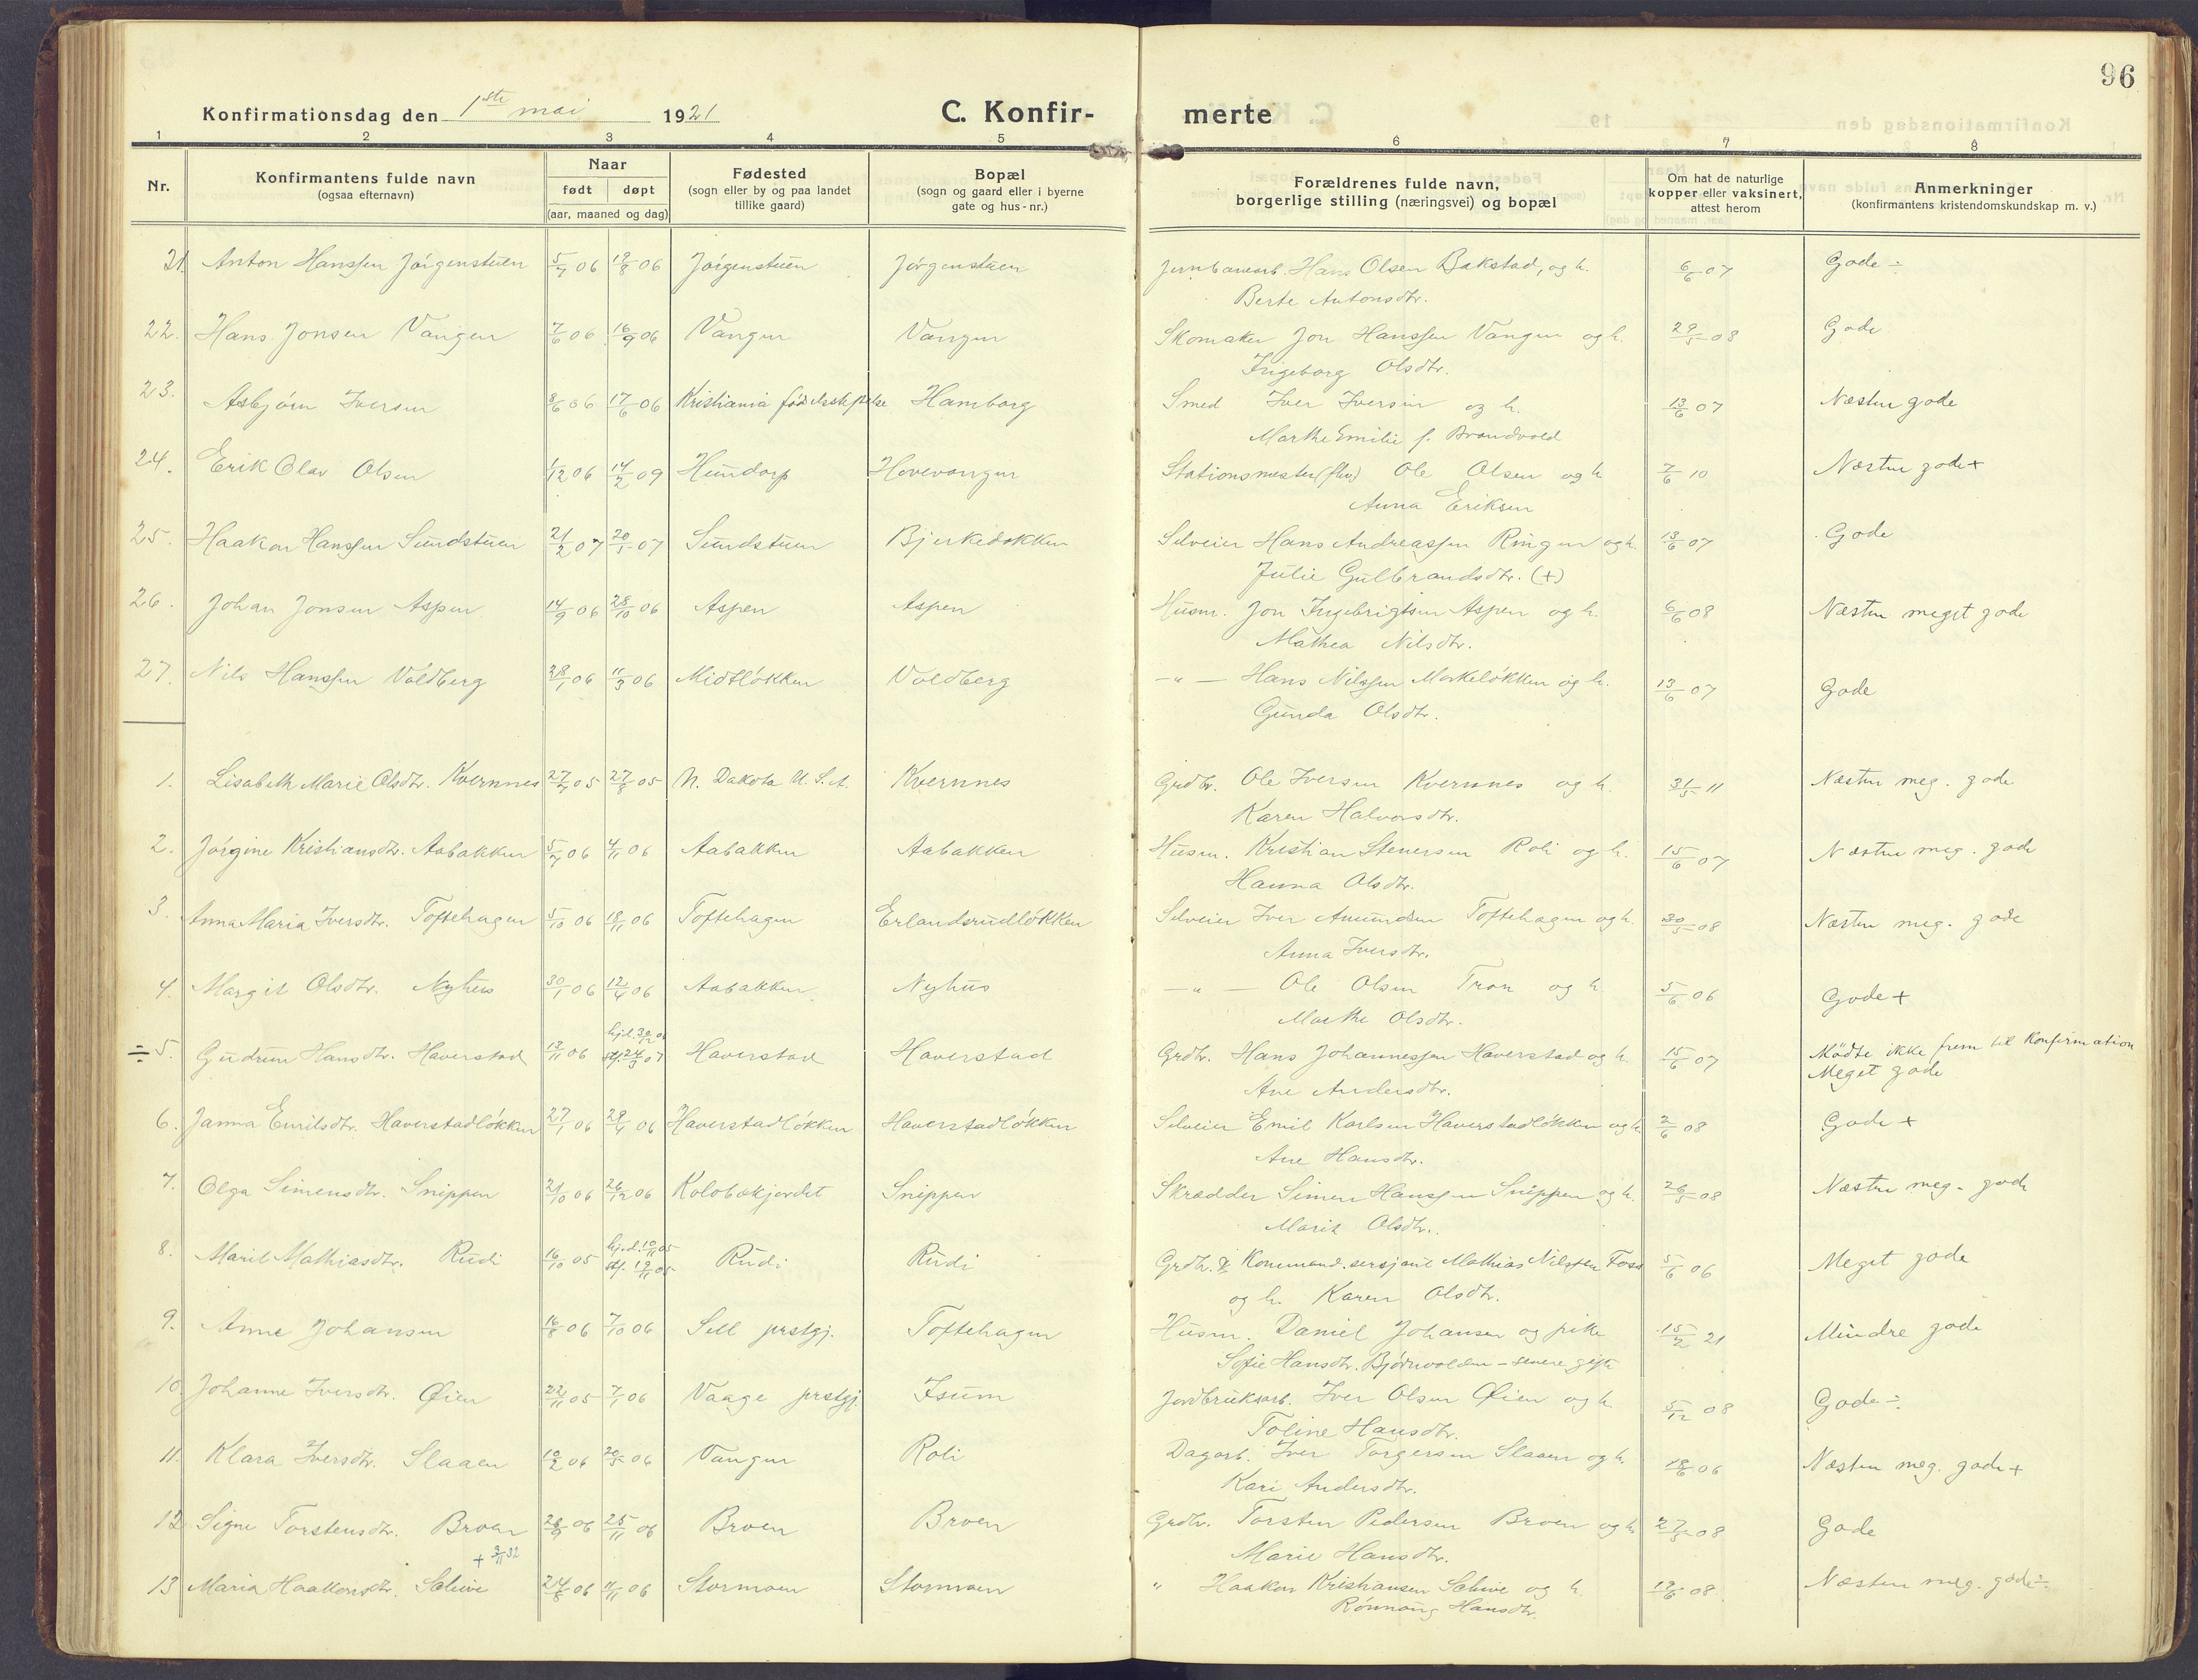 96
Konfirmationsdag den 1ste mai 1921 C. Konfir- merte
1 2 3 4 5 6 7 8
Nr. Konfirmantens fulde navn (ogsaa efternavn) Naar født døpt (aar, maaned og dag) Fødested (sogn eller by og paa landet tillike gaard) Bopæl (sogn og gaard eller i byerne gate og hus-nr.) Forældrenes fulde navn, borgerlige stilling (næringsvei) og bopæl Om hat de naturlige kopper eller vaksinert, attest herom Anmerkninger (konfirmantens kristendomskundskap m. v.)
21. Anton Hanssen Jørgenstuen 5/7 06 19/8 06 Jørgenstuen Jørgenstuen Jernbanearb. Hans Olsen Bakstad, og h. 6/6 07 Gode ÷
Berte Antonsdtr.
22. Hans Jonsen Vangen 7/6 06 16/9 06 Vangen Vangen Skomaker Jon Hanssen Vangen og h. 29/5 08 Gode
Ingeborg Olsdtr.
23. Asbjørn Iversen 8/6 06 17/6 06 Kristiania fødselsstiftelse Hamborg Smed Iver Iversen og h. 13/6 07 Næsten gode
Marthe Emilie f. Brandvold
24. Erik Olav Olsen 1/12 06 14/2 09 Hundorp Hovevangen Stationsmester Ole Olsen og h. 7/6 10 Næsten gode +
Anna Eriksen
25. Haakon Hanssen Sundstuen 21/2 07 20/5 07 Sundstuen Bjerkeløkken Selveier Hans Andreassen Ringen og h. 13/6 07 Gode
Julie Gulbrandsdtr. (+)
26. Johan Jonsen Aspen 14/9 06 28/10 06 Aspen Aspen Husm. Jon Ingebrigtsen Aspen og h. 6/6 08 Næsten meget gode
Mathea Nilsdtr.
27. Nils Hanssen Voldberg 28/1 06 11/3 06 Midtløkken Voldberg —„— Hans Nilssen Markeløkken og h. 13/6 07 Gode
Gunda Olsdtr.
1. Lisabeth Marie Olsdtr. Kvernnes 27/7 05 27/8 05 N. Dakota U.S.A. Kvernnes Grdbr. Ole Iversen Kvernnes og h. 31/5 11 Næsten meg. gode
Karen Halvorsdtr.
2. Jørgine Kristiansdtr. Aabakken 5/7 06 4/11 06 Aabakken Aabakken Husm. Kristian Stenersen Roli og h. 15/6 07 Næsten meg. gode
Hanna Olsdtr.
3. Anna Maria Iversdtr. Toftehagen 5/10 06 18/11 06 Toftehagen Erlandsrudløkken Selveier Iver Amundsen Toftehagen og h. 30/5 08 Næsten meg. gode
Anna Iversdtr.
4. Margit Olsdtr. Nyhus 30/1 06 12/4 06 Aabakken Nyhus —„— Ole Olsen Tron og h. 5/6 06 Gode +
Marthe Olsdtr.
÷ 5. Gudrun Hansdtr. Haverstad 13/11 06 hjd. 30/12 06 stf. 24/3 07 Haverstad Haverstad Grdbr. Hans Johannessen Haverstad og h. 15/6 07 Mødte ikke frem til Konfirmation
Ane Andersdtr. Meget gode
6. Janna Emilsdtr. Haverstadløkken 27/1 06 29/4 06 Haverstadløkken Haverstadløkken Selveier Emil Karlsen Haverstadløkken og h. 2/6 08 Gode +
Ane Hansdtr.
7. Olga Simensdtr. Snippen 21/10 06 26/12 06 Kolobækjordet Snippen Skrædder Simen Hanssen Snippen og h. 26/5 08 Næsten meg. gode
Marit Olsdtr.
8. Marit Mathiasdtr. Rudi 16/10 05 hjd. 10/11 05 stf. 19/11 05 Rudi Rudi Grdbr. & Kommand.sersjant Mathias Nilssen Foss 5/6 06 Meget gode
og h. Karen Olsdtr.
9. Anne Johansen 16/8 06 7/10 06 Sell prstgj. Toftehagen Husm. Daniel Johansen og pike 15/2 21 Mindre gode
Sofie Hansdtr. Bjørnvolden – senere gifte
10. Johanne Iversdtr. Øien 22/11 05 7/1 06 Vaage prstgj. Isum Jordbruksarb. Iver Olsen Øien og h. 5/12 08 Gode ÷
Toline Hansdtr.
11. Klara Iversdtr. Slaaen 10/2 06 20/5 06 Vangen Roli Dagarb. Iver Torgersen Slaaen og h. 18/6 06 Næsten meg. gode +
Kari Andersdtr.
12. Signe Torstensdtr. Broen 26/9 06 25/11 06 Broen Broen Grdbr. Torsten Pedersen Broen og h. 27/5 08 Gode
Marie Hansdtr.
+ 3/11 32
13 Maria Haakonsdtr. Schive 24/8 06 11/11 06 Stormoen Stormoen „ Haakon Kristiansen Schive og h. 19/6 08 Næsten meg. gode ÷
Rønnaug Hansdtr.